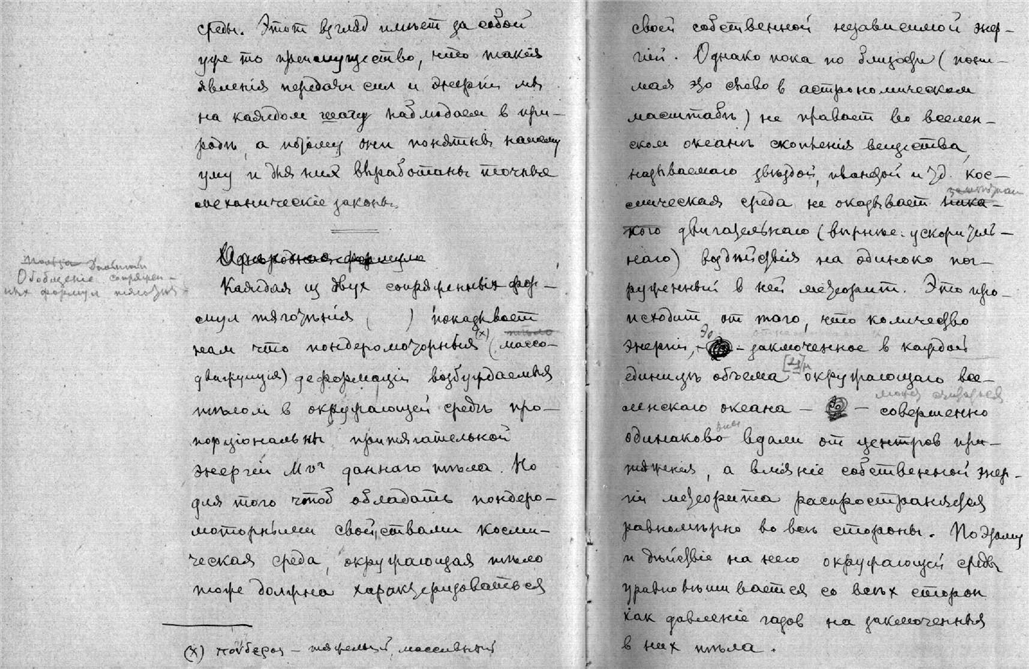 среды. Этот взгляд имеет за собой
уже то преимущество, что такія
явленія передачи сил и энергіи мы
на каждом шагу наблюдаем в при-
родѣ, а потому они понятны нашему
уму и для них выработаны точные
механическіе законы.
Однородная формула
Обобщеніе сопряжен-
ных формул тяготѣнія
Каждая из двух сопряженных фор-
мул тяготѣнія ( ) показывает
нам что пондеромоторныя (х) (массо-
движущія) деформаціи возбуждаемыя
тѣлом в окружающей средѣ про-
порціональны притягательной
энергіи данного тѣла. Но
для того чтоб обладать пондеро-
моторными свойствами косми-
ческая среда, окружающая тѣло
тоже должна характеризоваться
(х) пондерос – тяжелый, массивный
своей собственной независимой энер-
гіей. Однако пока по близости (пони-
мая это слово в астрономическом
масштабѣ) не плавает во вселен-
ском океанѣ скопленія вещества,
называемаго звѣздой, планетой и т.д. кос-
мическая среда не оказывает ника-
кого двигательнаго (вѣрнѣе: ускоритель-
наго) воздѣйствія на одиноко пог-
руженный в ней метеорит. Это про-
исходит от того, что количество
энергіи, Эо – заключенное в каждой
единицѣ объема окружающаго все-
ленскаго океана – совершенно
одинаково вдали от центров при-
тяженія, а вліяніе собственной энер-
гіи метеорита распространяется
равномѣрно во всѣ стороны. Поэтому
и дѣйствіе на него окружающей среды
уравновѣшивается со всѣх сторон
как давленіе газов на заключенныя
в них тѣла.